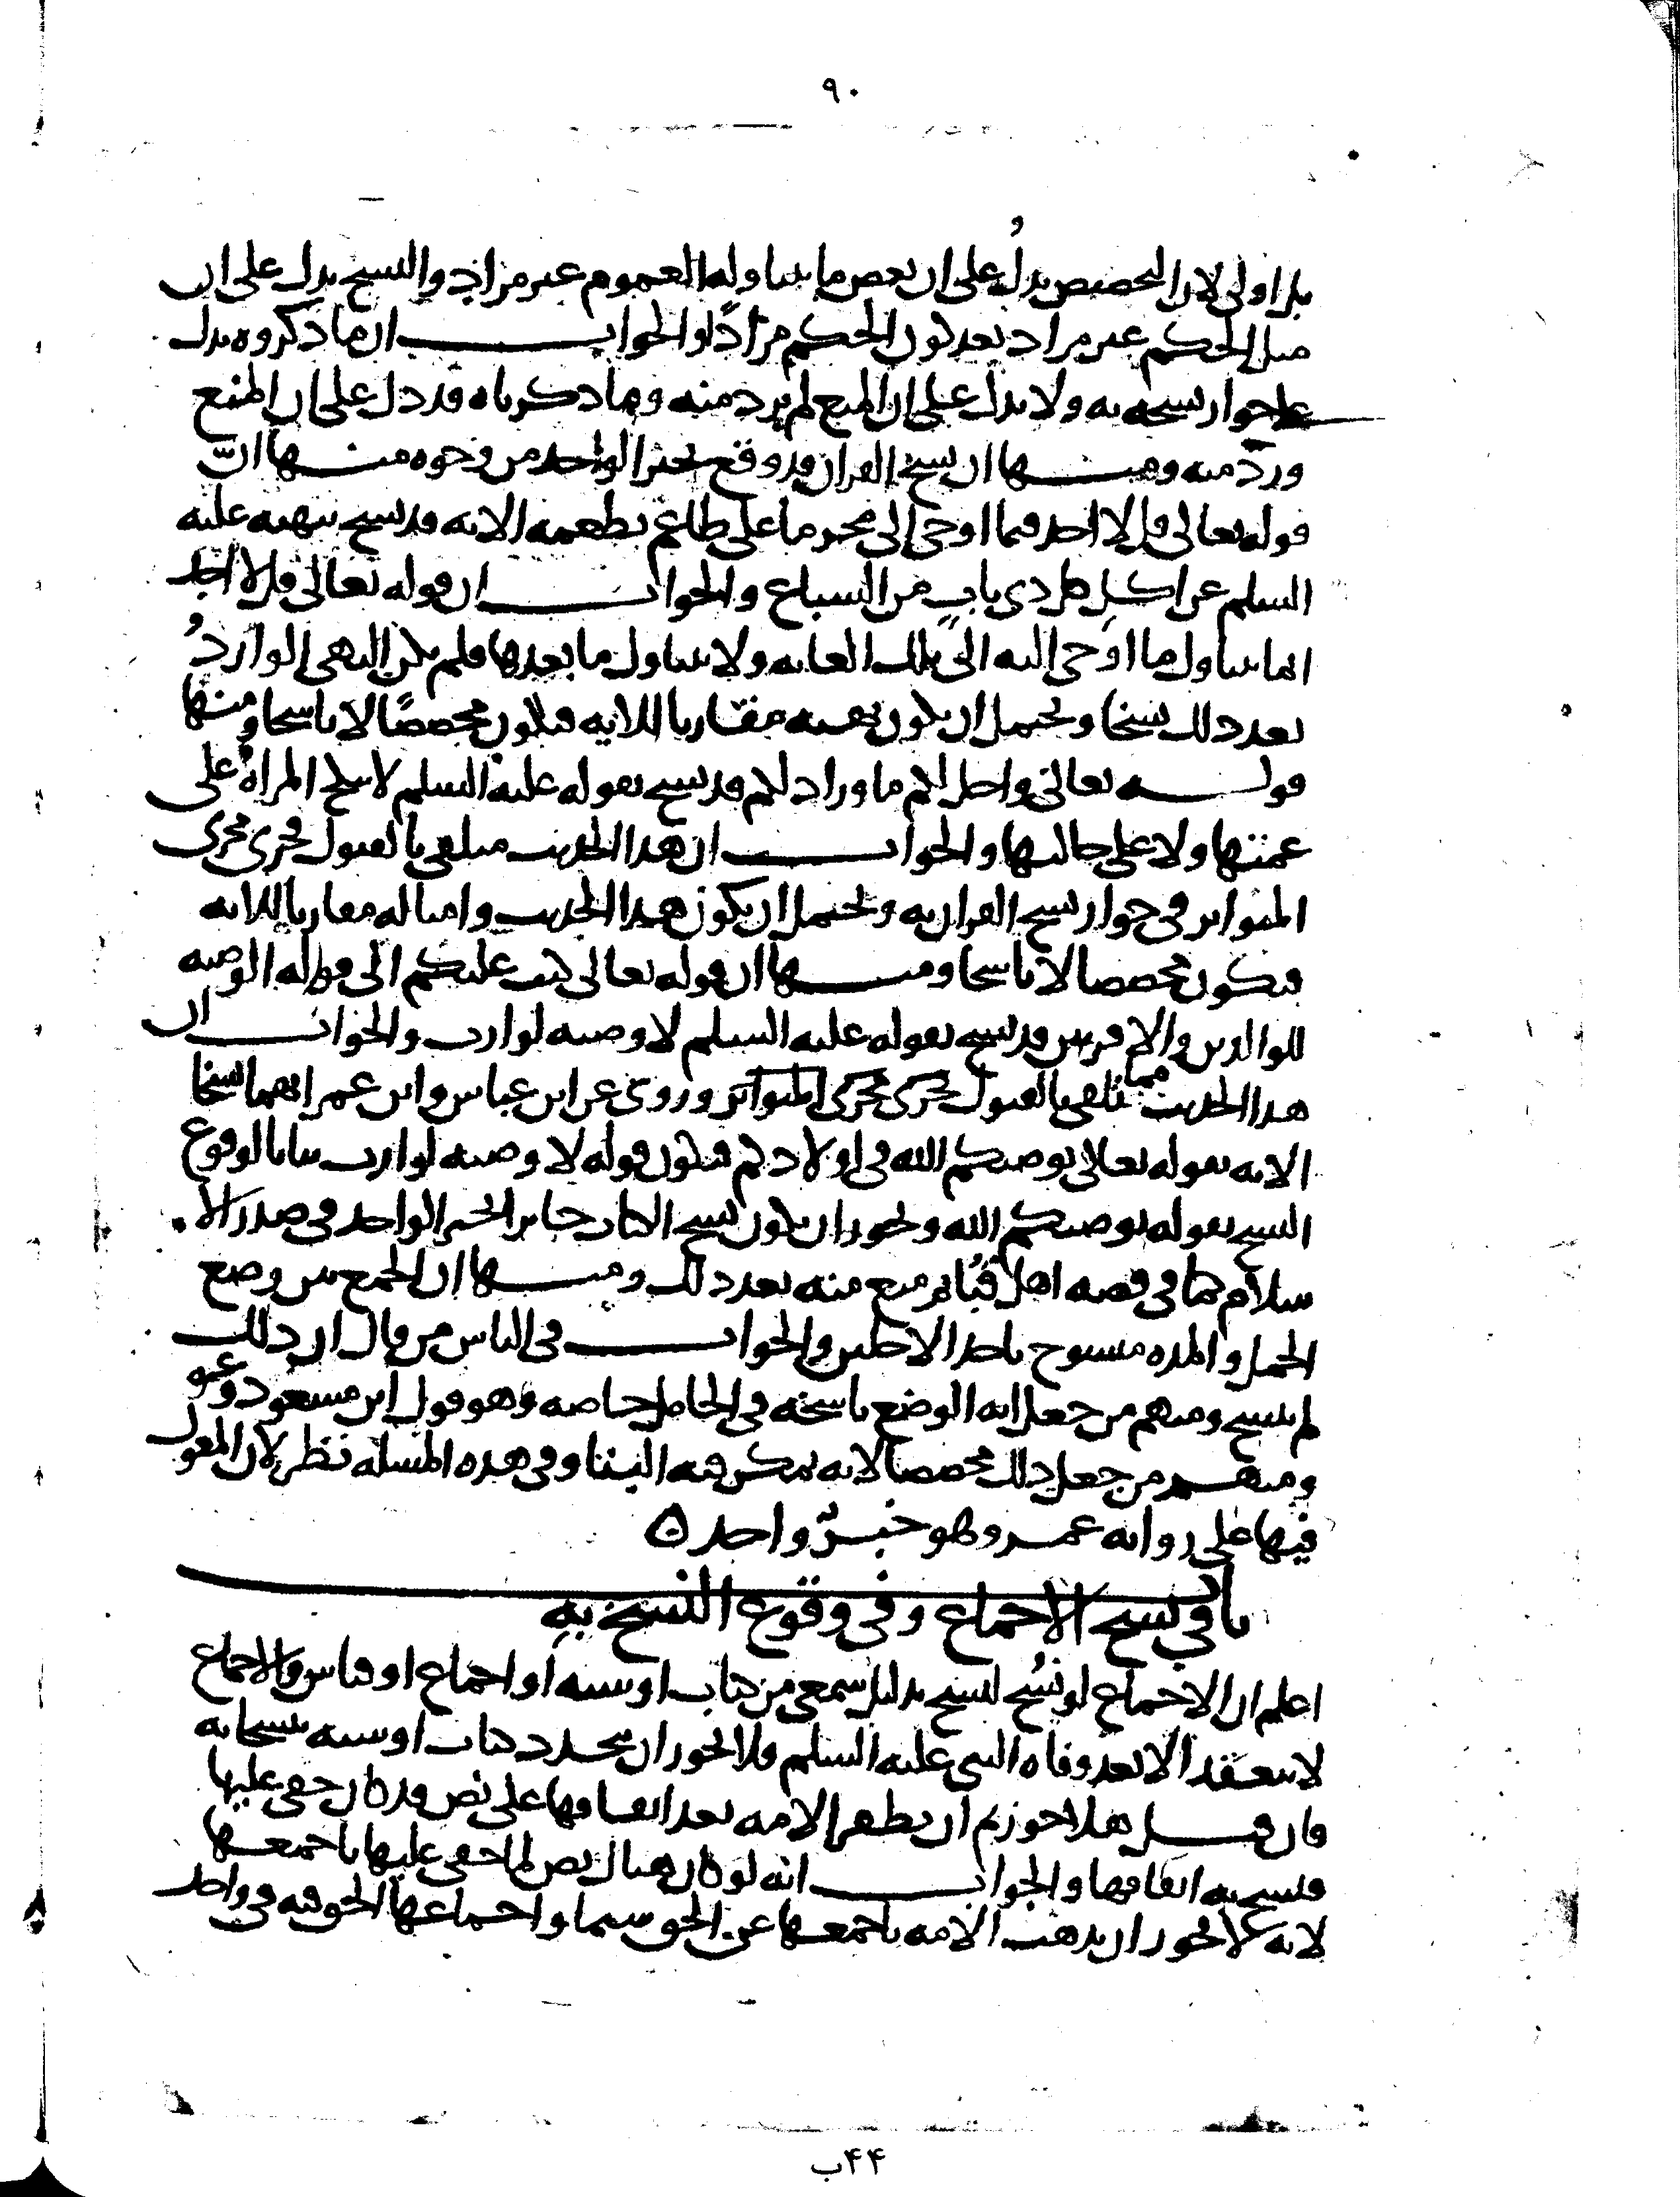 ٩٠
بل اولى لان التخصيص يدل على ان بعض ما يتناوله العموم غير مراد والنسخ يدل على ان
مثل الحكم غير مراد بعد كون الحكم مرادًا والجواب ان ما ذكروه يدل
على جواز نسخه به ولا يدل على ان المنع لم يرد منه وما ذكرناه قد دل على ان المنع
ورد منه ومنها ان نسخ القران قد وقع بخبر الواحد من وجوه منها انّ
قوله تعالى قل لا اجد فيما اوحي الي محرما على طاعم يطعمه الاية قد نسخ بنهيه عليه
السلم عن اكل كل ذي ناب من السباع والجواب ان قوله تعالى قل لا اجد
انما يتناول ما اوحي اليه الى تلك الغاية ولا يتناول ما بعدها فلم يكن النهي الواردُ
بعد ذلك نسخا ويحتمل ان يكون نهيه مقاربا للاية فيكون مخصصًا لا ناسخا ومنها
قوله تعالى واحل لكم ما وراء ذلكم قد نسخ بقوله عليه السلم لا تنكح المراة على
عمتها ولا على خالتها والجواب ان هذا الحديث متلقى بالقبول فجرى مجرى
المتواتر في جواز نسخ القران به ويحتمل ان يكون هذا الحديث وامثاله مقاربا للاية
فيكون مخصصا لا ناسخا ومنها ان قوله تعالى كتب عليكم الى قوله الوصية
للوالدين والاقربين قد نسخ بقوله عليه السلم لا وصية لوارث والجواب ان
هذا الحديث مما تلقي بالقبول فجرى مجرى المتواتر وروي عن ابن عباس وابن عمر انهما نسخا
الاية بقوله تعالى يوصيكم الله في اولادكم فيكون قوله لا وصية لوارث بيانا لوقوع
النسخ بقوله يوصيكم الله ويجوز ان يكون نسخ الكتاب جايز الخبر الواحد في صدر الا
سلام كما في قصة اهل قُبا ثم منع منه بعد ذلك ومنها ان الجمع بين وضع
الحمل والمدة منسوخ باحد الاجلين والجواب في الناس من قال ان ذلك
لم ينسخ ومنهم من جعل اية الوضع ناسخة في الحامل خاصة وهو قول ابن مسعود وغيره
ومنهم من جعل ذلك مخصصا لانه يمكن فيه البنا وفي هذه المسلة نظر لان المعول
فيها على رواية عمر وهو خبرٌ واحد ٥
باب في نسخ الاجماع وفي وقوع النسخ بهِ
اعلم ان الاجماع لو نُسخ لنسخ بدليل سمعي من كتاب او سنة او اجماع او قياس والاجماع
لا ينعقد الا بعد وفاة النبي عليه السلم فلا يجوز ان يتجدد كتاب او سنة ينسخانه
فان قيل هلا جوزتم ان تظفر الامة بعد اتفاقها على نص قد كان خفي عليها
فينسخ به اتفاقها والجواب انه لو كان هناك نص لما خفي عليها باجمعها
لانه لا يجوز ان يذهب الامة باجمعها عن الحق سيما واجماعها الحق فيه في واحد
٤٤ب